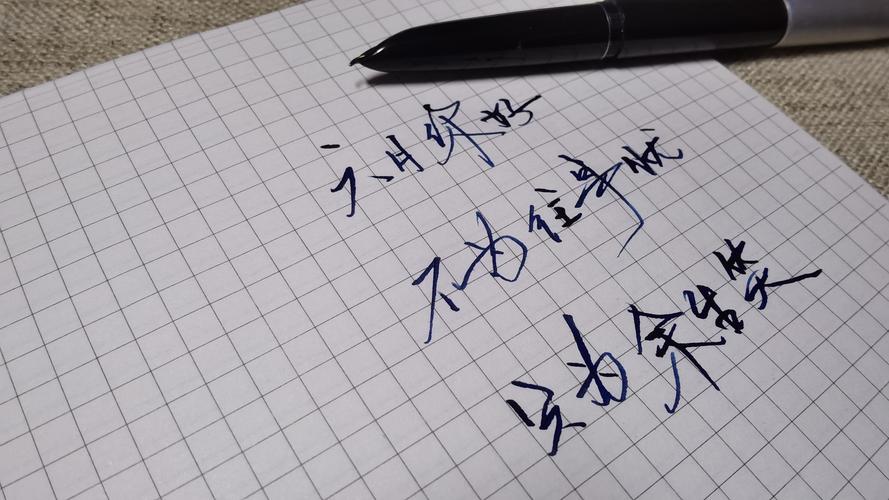 六月你好
不为往事忧
只为余生笑